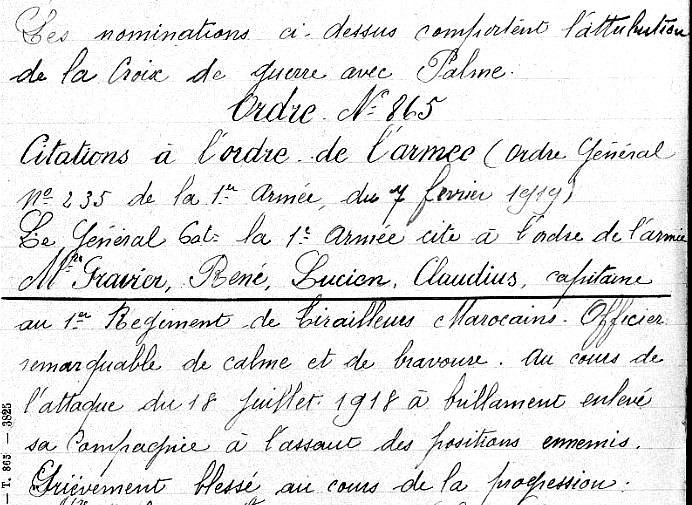 Les nominations ci-dessus comportent l'attribution
de la Croix de guerre avec Palme.
Ordre N° 865
Citations à l'ordre de l'armée (Ordre Général
N° 235 de la 1re Armée, du 7 février 1919)
Le Général Cat: la 1e Armée cite à l'ordre de l'armée
Mr Gravier, René, Lucien, Claudius, capitaine
au 1er Régiment de Tirailleurs Marocains. Officier
remarquable de calme et de bravoure. Au cours de
l'attaque du 18 Juillet 1918 à brillament enlevé
sa Compagnie à l'assaut des positions ennemis.
Grièvement blessé au cours de la progession.
— T. 865 — 3825